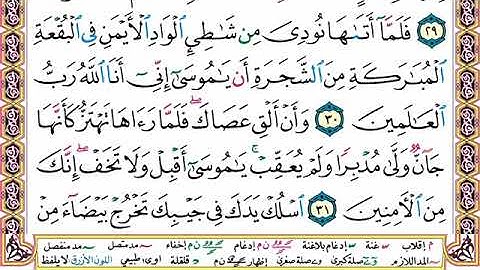 ٢٩ فَلَمَّآ أَتَىٰهَا نُودِىَ مِن شَٰطِئِ ٱلْوَادِ ٱلْأَيْمَنِ فِى ٱلْبُقْعَةِ
ٱلْمُبَٰرَكَةِ مِنَ ٱلشَّجَرَةِ أَن يَٰمُوسَىٰٓ إِنِّىٓ أَنَا ٱللَّهُ رَبُّ
ٱلْعَٰلَمِينَ ٣٠ وَأَنْ أَلْقِ عَصَاكَ ۖ فَلَمَّا رَءَاهَا تَهْتَزُّ كَأَنَّهَا
جَآنٌّ وَلَّىٰ مُدْبِرًا وَلَمْ يُعَقِّبْ ۚ يَٰمُوسَىٰٓ أَقْبِلْ وَلَا تَخَفْ ۖ إِنَّكَ
مِنَ ٱلْءَامِنِينَ ٣١ ٱسْلُكْ يَدَكَ فِى جَيْبِكَ تَخْرُجْ بَيْضَآءَ مِنْ
م إقلاب غنة إدغام بلاغنة ن م إدغام إخفاء مد متصل مد منفصل
المد اللازم صلة كبرى صلة صغرى إظهار ن م قلقلة اوى طبيعي اللون الأزرق لا يلفظ